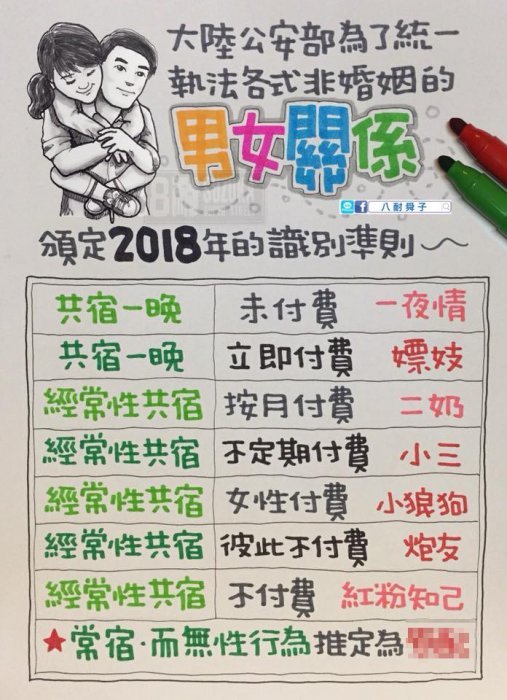 大陸公安部為了統一
執法各式非婚姻的
男女關係
八耐舜子
頒定2018年的識別準則
共宿一晚 未付費 一夜情
共宿一晚 立即付費 嫖妓
經常性共宿 按月付費 二奶
經常性共宿 不定期付費 小三
經常性共宿 女性付費 小狼狗
經常性共宿 彼此不付費 炮友
經常性共宿 不付費 紅粉知己
★常宿·而無性行為推定為